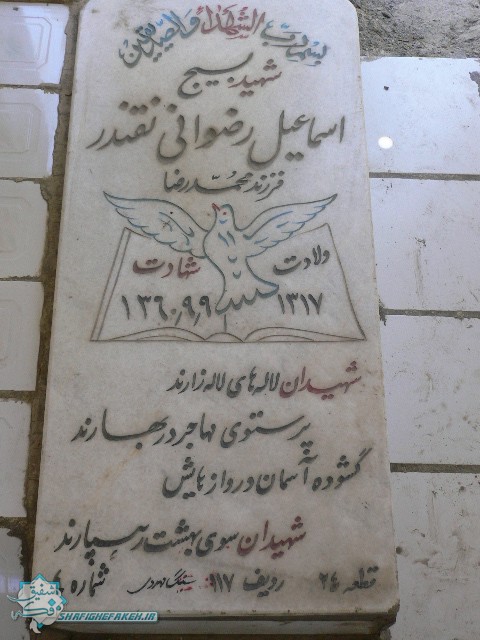 بسم رب الشهداء والصدیقین
شهید بسیج
اسماعیل رضوانی نقندر
فرزند محمدرضا
ولادت شهادت
۱۳۱۷ ۱۳۶۰٫۹٫۹
شهیدان لاله های لاله زارند
پرستوی مهاجر در بهارند
گشوده آسمان دروازه هایش
شهیدان سوی بهشت رهسپارند
قطعه ۲۴ ردیف ۹۱۷ شماره
شفیق فکه
SHAFIGHEFAKEH.IR